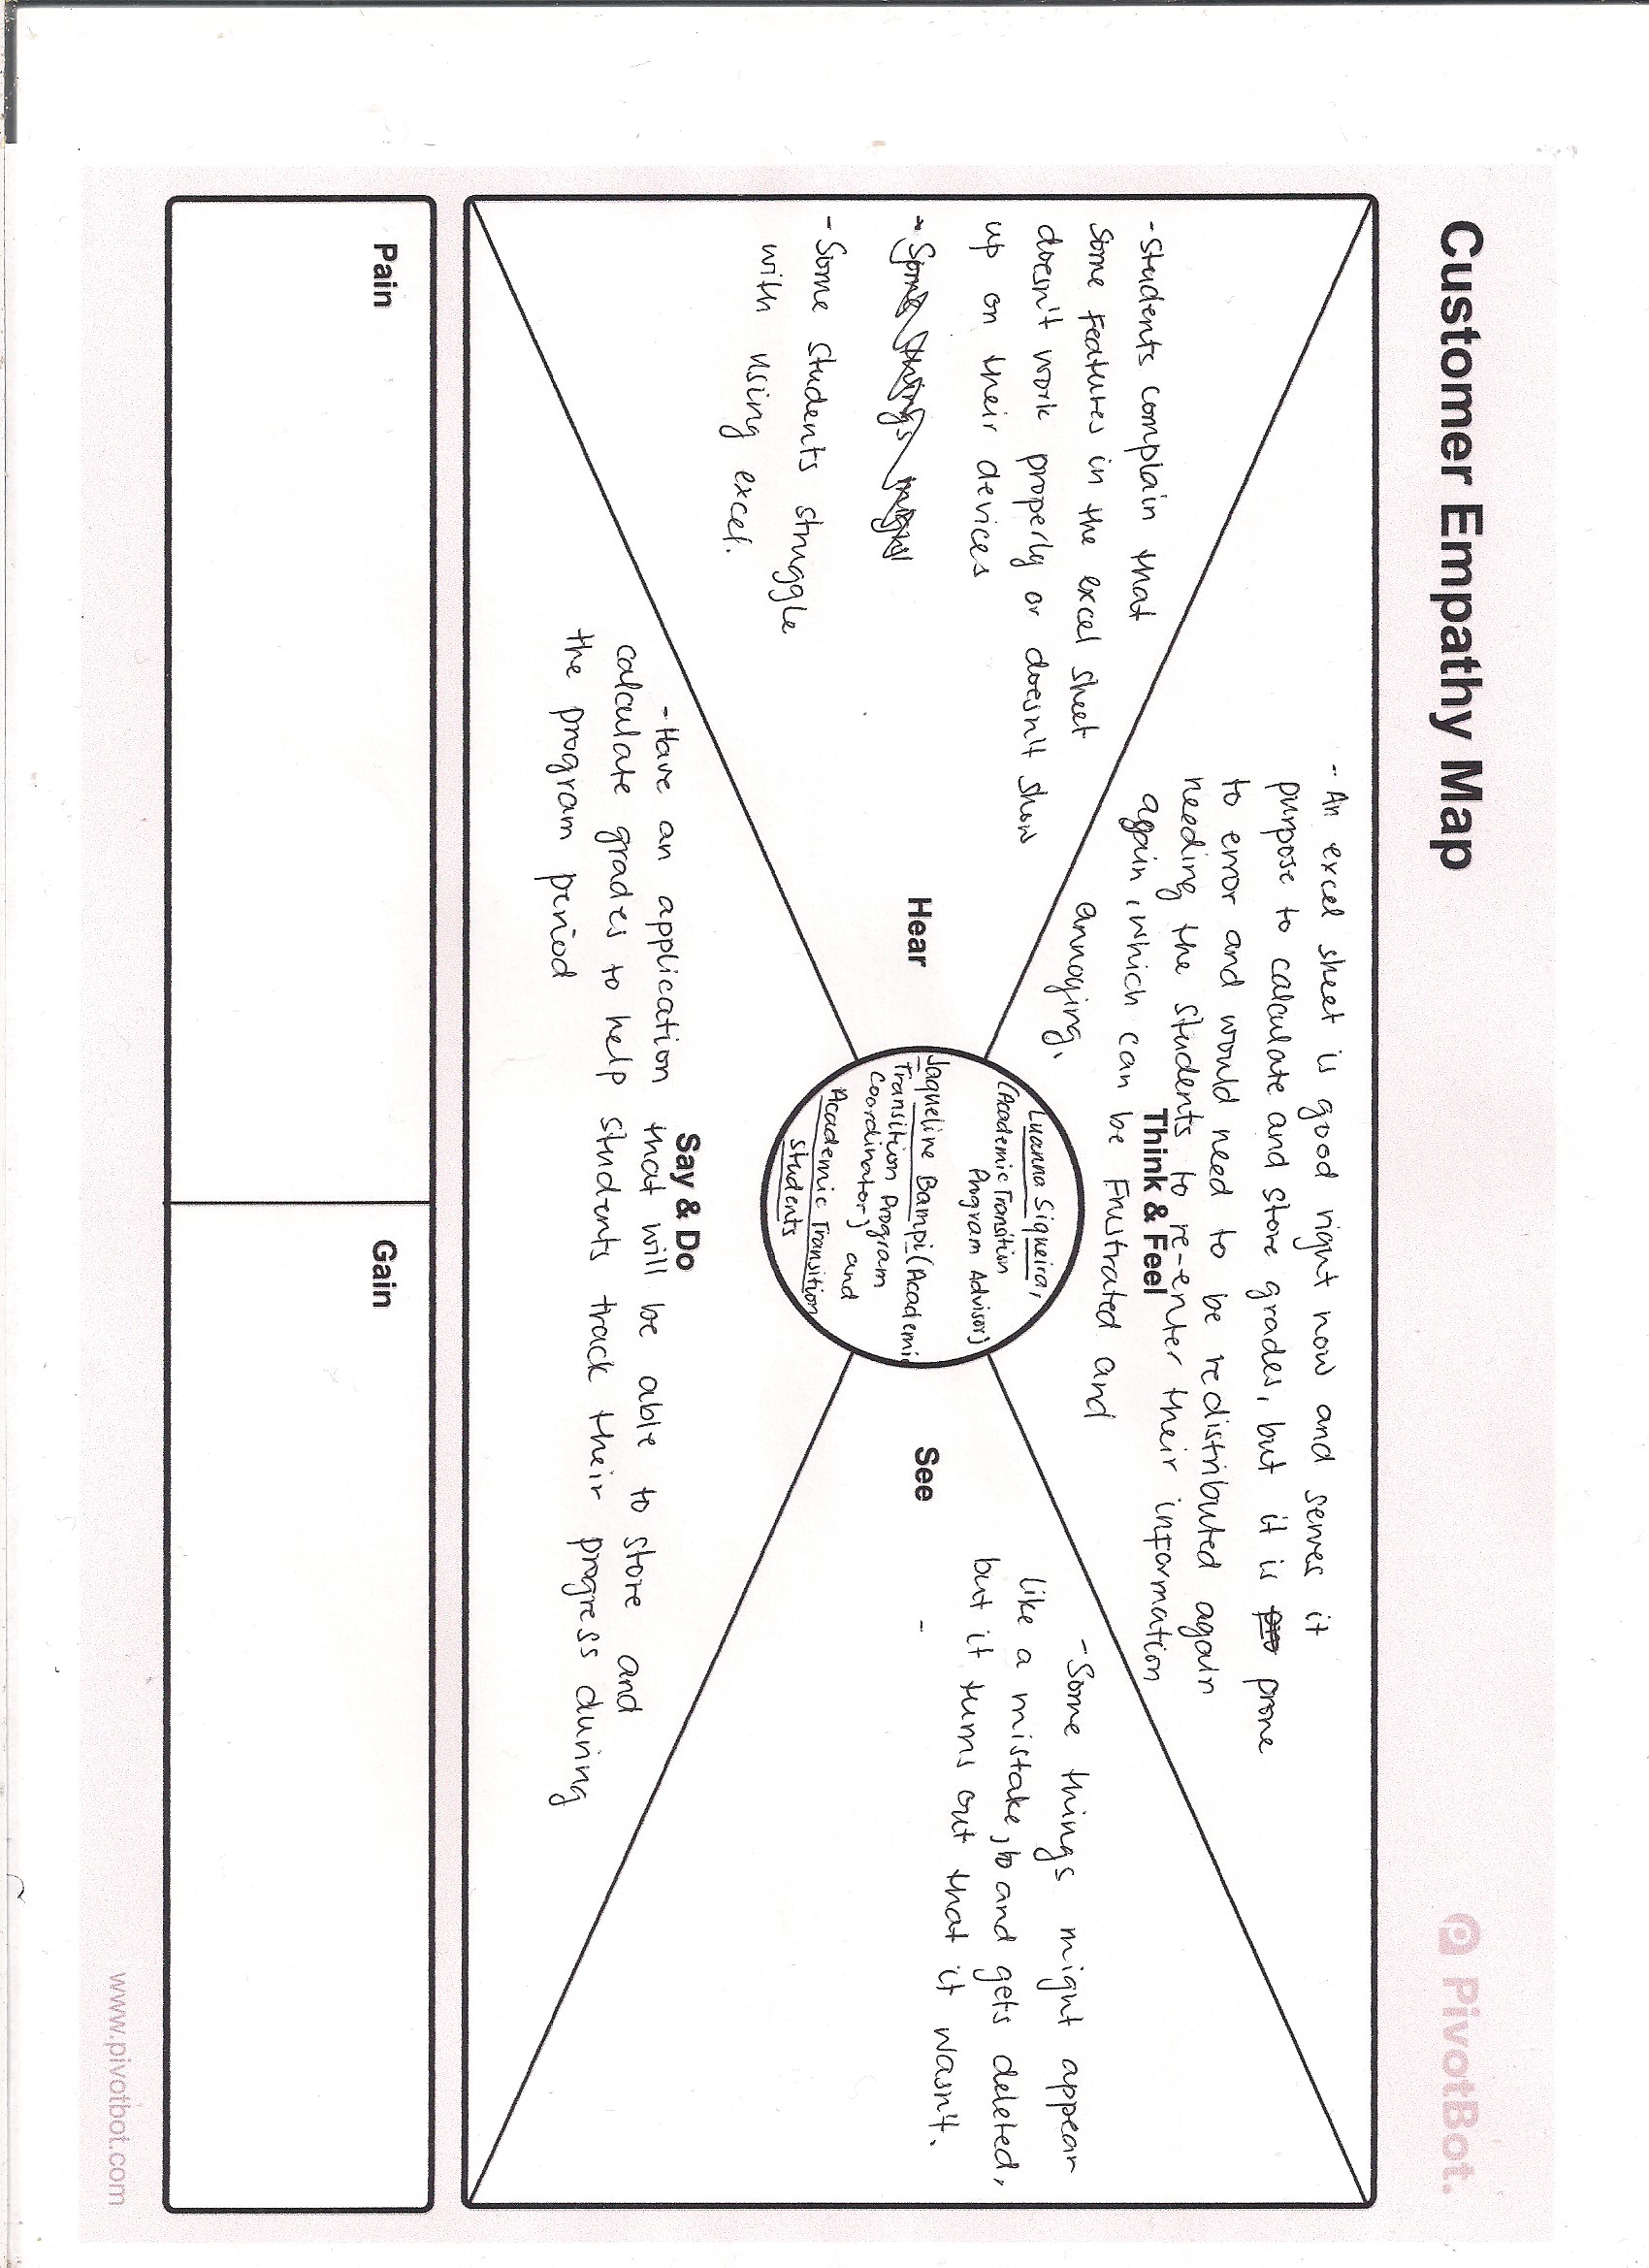 Customer Empathy Map
PivotBot.
- An excel sheet is good right now and serves it
purpose to calculate and store grades, but it is pro prone
to error and would need to be redistributed again
needing the students to re-enter their information
Think & Feel
again, which can be Frustrated and
annoying.
- Students complain that
some features in the excel sheet
doesn't work properly or doesn't show
up on their devices
- Some things might
- Some students struggle
with using excel.
Hear
Luanna Siqueira,
(Academic Transition
Program Advisor)
Jaqueline Bampi (Academic
Transition Program
Coordinator) and
Academic Transition
students
- Some things might appear
like a mistake, to and gets deleted,
but it turns out that it wasn't.
See
-
Say & Do
- Have an application that will be able to store and
calculate grades to help students track their progress during
the program period
Pain
Gain
www.pivotbot.com